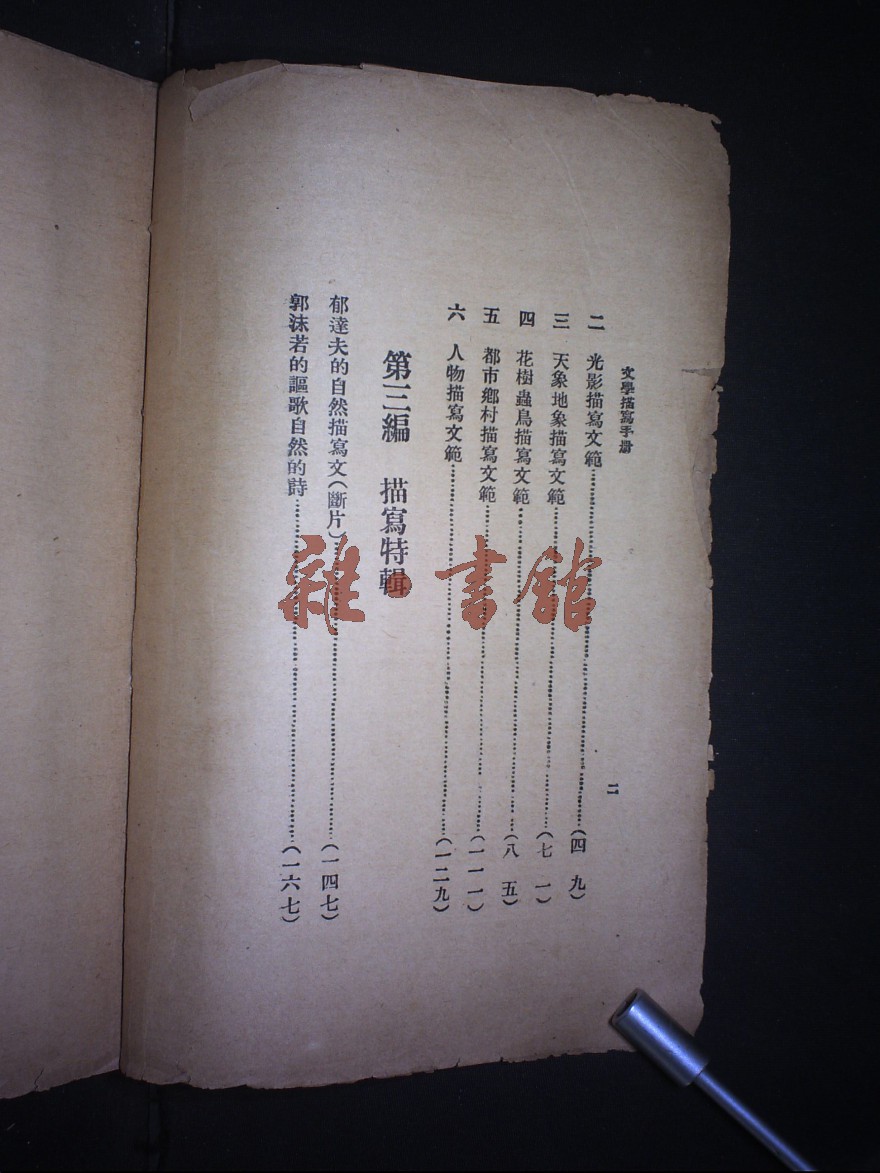 文學描寫手册
二
二 光影描寫文範……(四九)
三 天象地象描寫文範……(七一)
四 花樹蟲鳥描寫文範……(八五)
五 都市鄉村描寫文範……(一一一)
六 人物描寫文範……(一二九)
第三編 描寫特輯
郁達夫的自然描寫文(斷片)……(一四七)
郭沫若的謳歌自然的詩……(一六七)
雜·書館